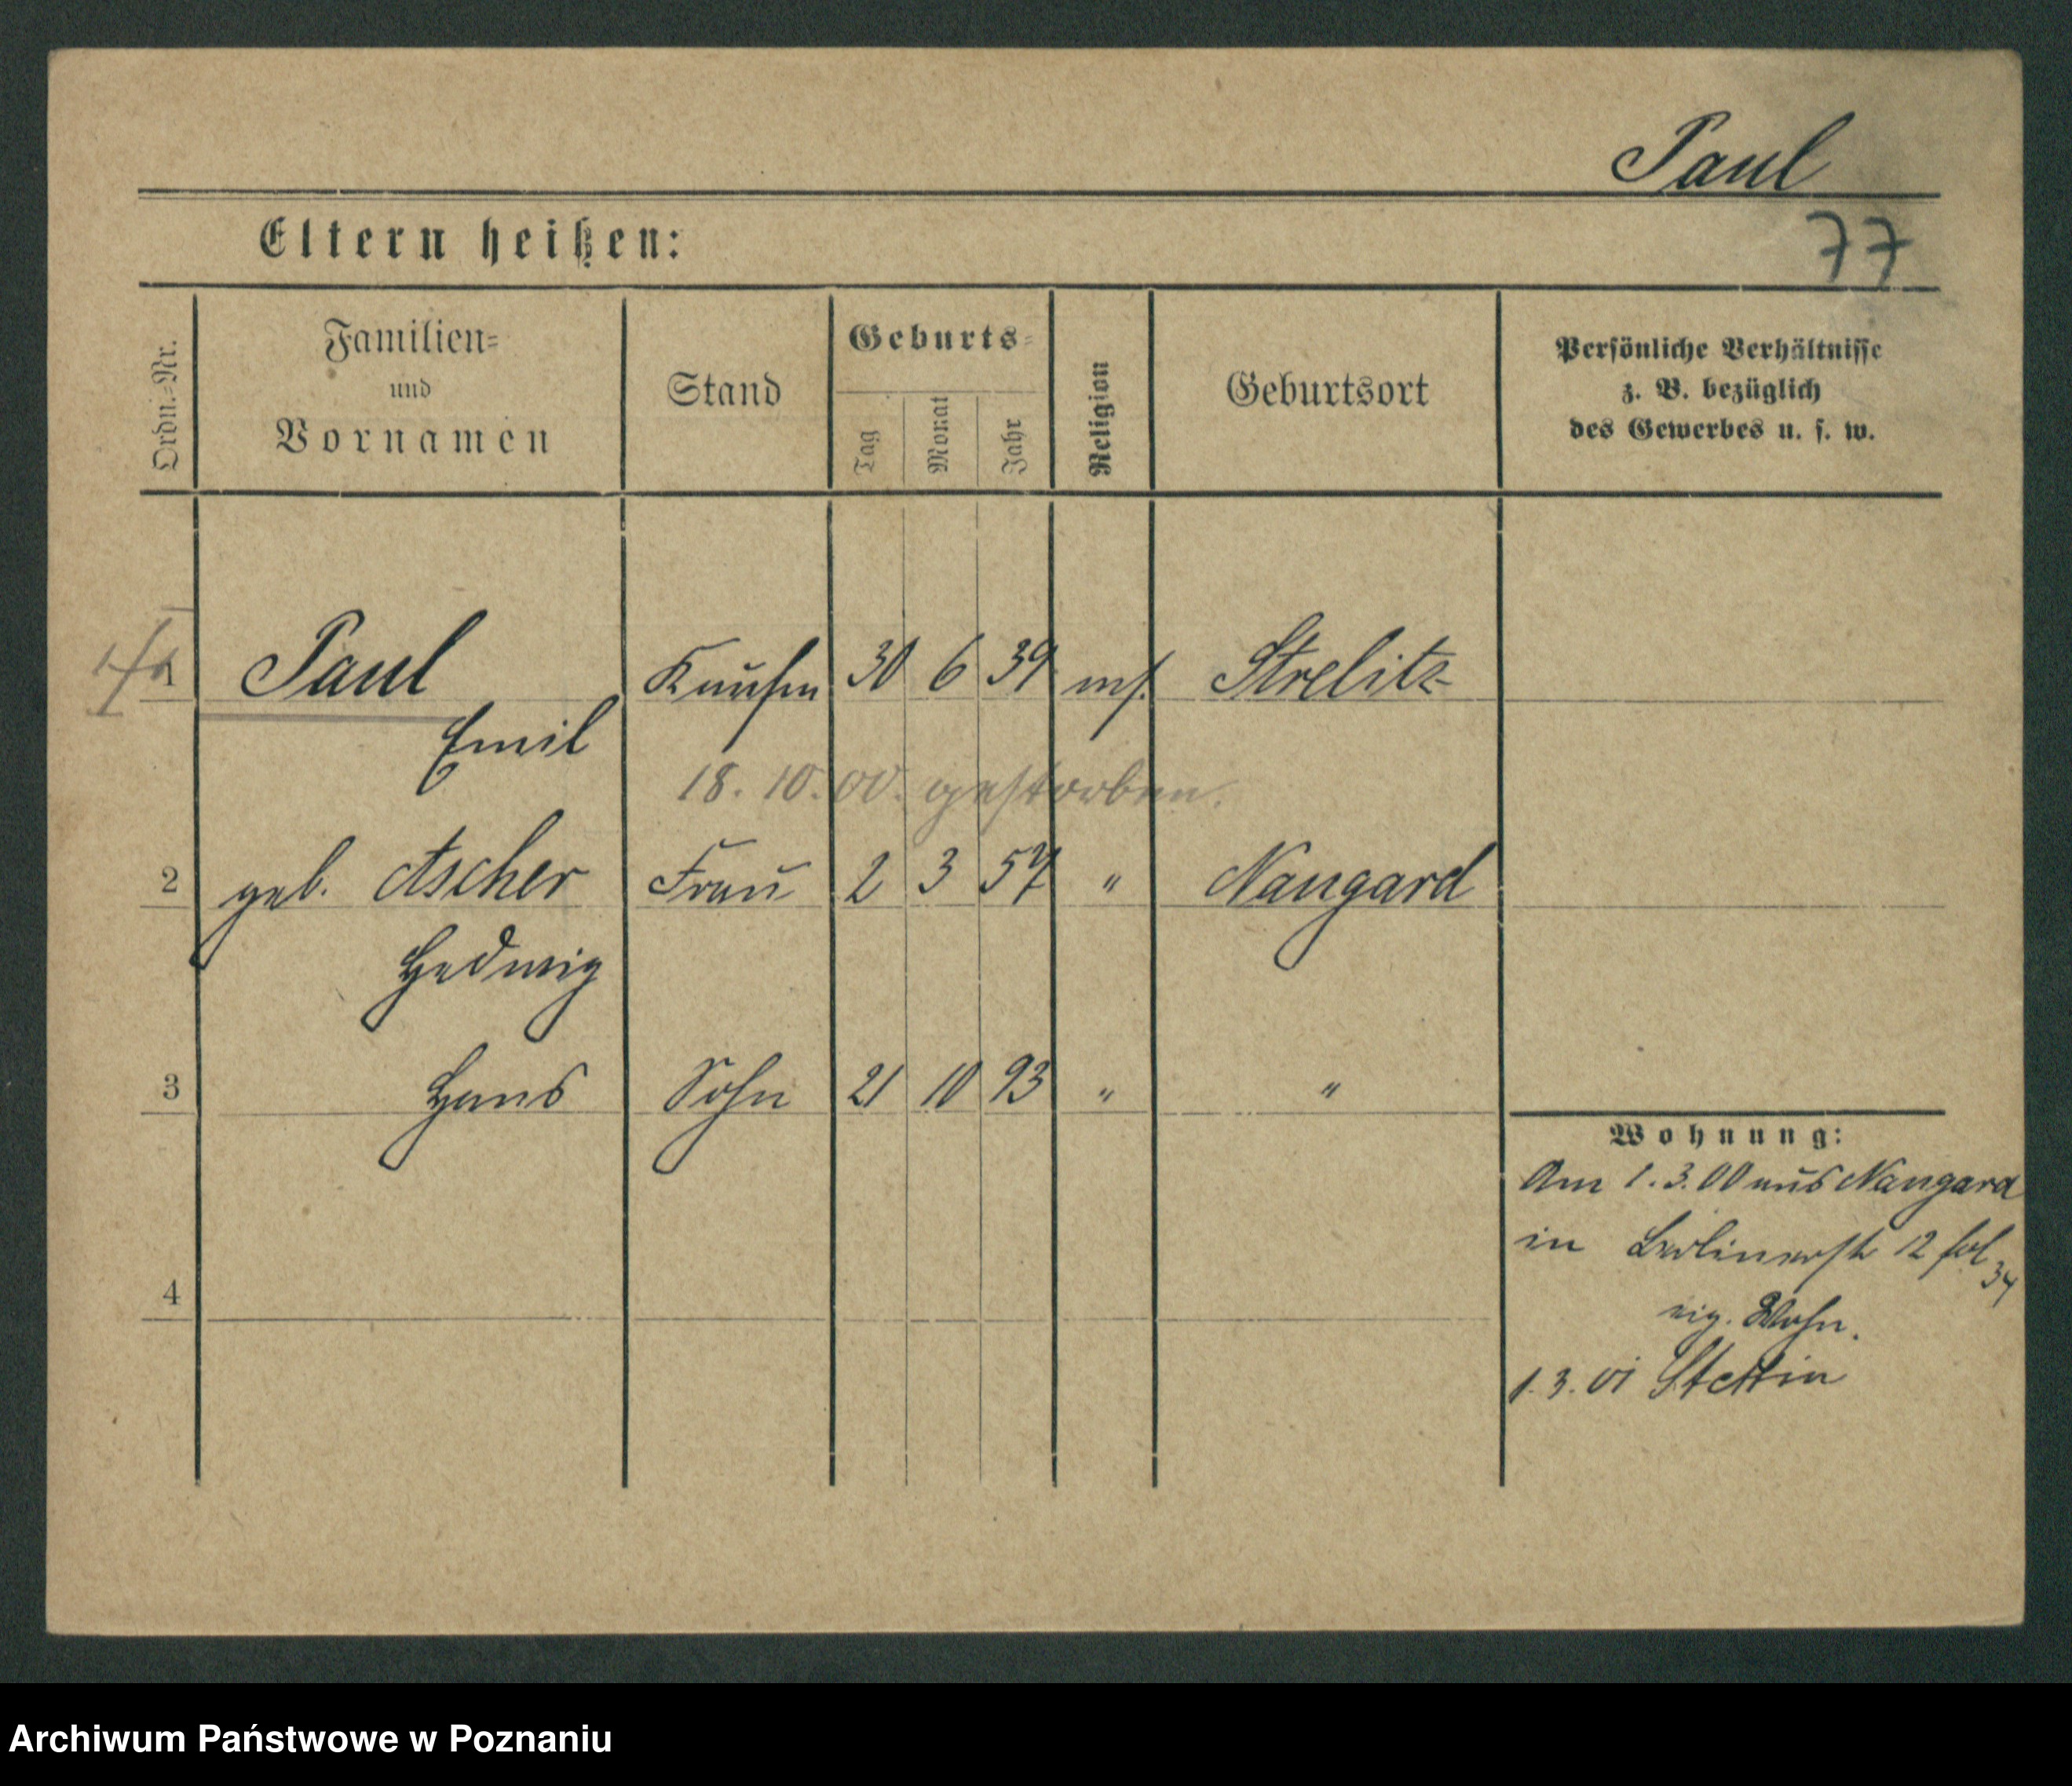 Paul
77
Eltern heißen:
Ordn.-Nr.
Familien-
und
Vornamen
Stand
Geburts-
Tag
Monat
Jahr
Religion
Geburtsort
Persönliche Verhältnisse
z. B. bezüglich
des Gewerbes u. s. w.
1 Paul Kaufm 30 6 39 ms. Strelitz
Emil
18.10.00. gestorben.
2 geb. Ascher Frau 2 3 57 " Naugard
Hedwig
3 Hans Sohn 21 10 93 " "
Wohnung:
Am 1.3.00 aus Naugard
in Berlinerstr 12 fol
34
eig. Wohn.
4
1.3.01 Stettin
Archiwum Państwowe w Poznaniu